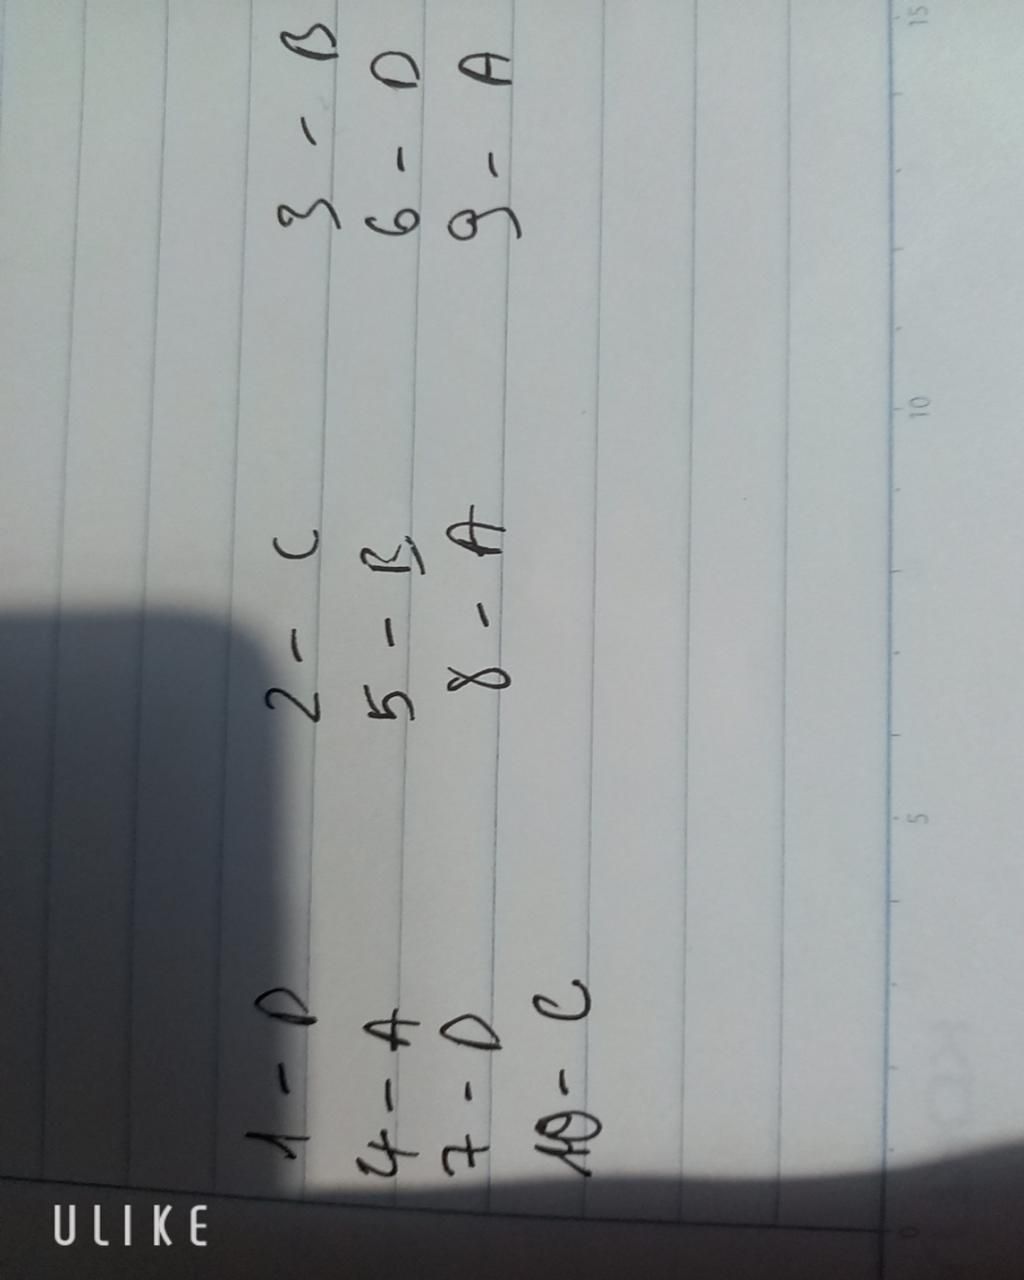 1 - D 2 - C 3 - B
4 - A 5 - B 6 - D
7 - D 8 - A 9 - A
10 - C
0 5 10 15
ULIKE